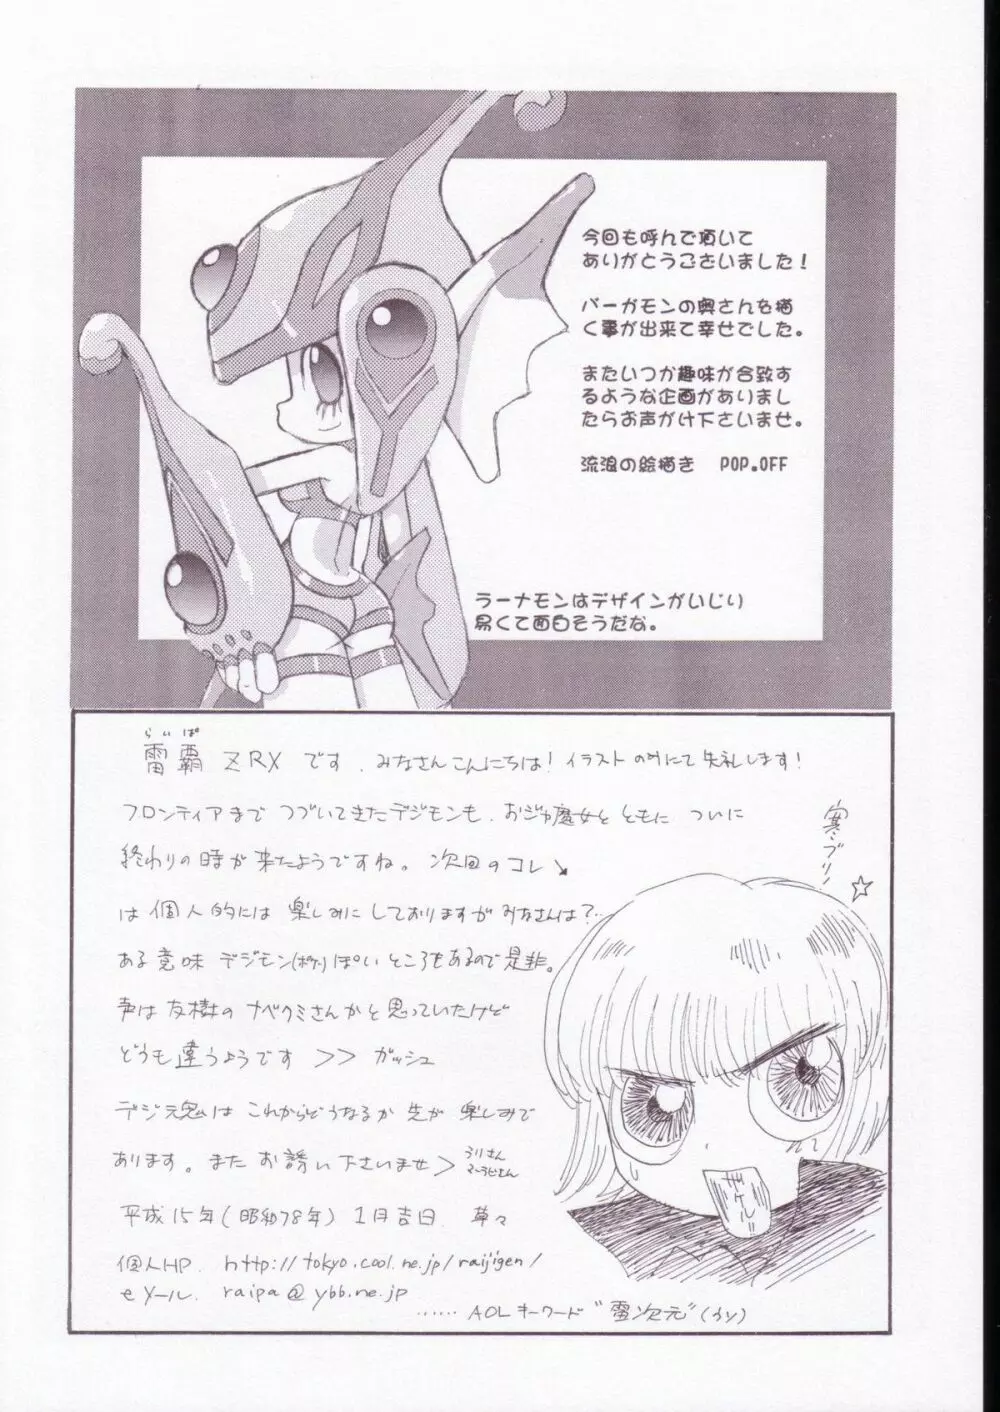 今回も呼んで頂いて
ありがとうございました!
バーガモンの奥さんを描
く事が出来て幸せでした。
またいつか趣味が合致す
るような企画がありまし
たらお声がけ下さいませ。
流浪の絵描き POP.OFF
ラーナモンはデザインがいじり
易くて面白そうだな。
らいぱ
雷覇 ZRX です、みなさんこんにちは! イラストのみにて失礼します!
フロンティアまで つづいてきたデジモンも、おジャ魔女と ともに ついに
終わりの時が来たようですね。 次回のコレ↘
は個人的には 楽しみにしておりますがみなさんは?…
ある意味 デジモン(ポケ)ぽい ところもあるので是非。
声は友樹の ナベクミさんかと思っていたけど
どうも違うようです >> ガッシュ
デジ元魂は これからどうなるか 先が 楽しみで
あります。また お誘い下さいませ>
平成15年(昭和78年) 1月吉日 草々
個人HP. http://tokyo.cool.ne.jp/raijigen/
eメール. raipa@ybb.ne.jp
…… AOLキーワード"雷次元"(うソ)
寒ブリ!☆
ザケレ!!